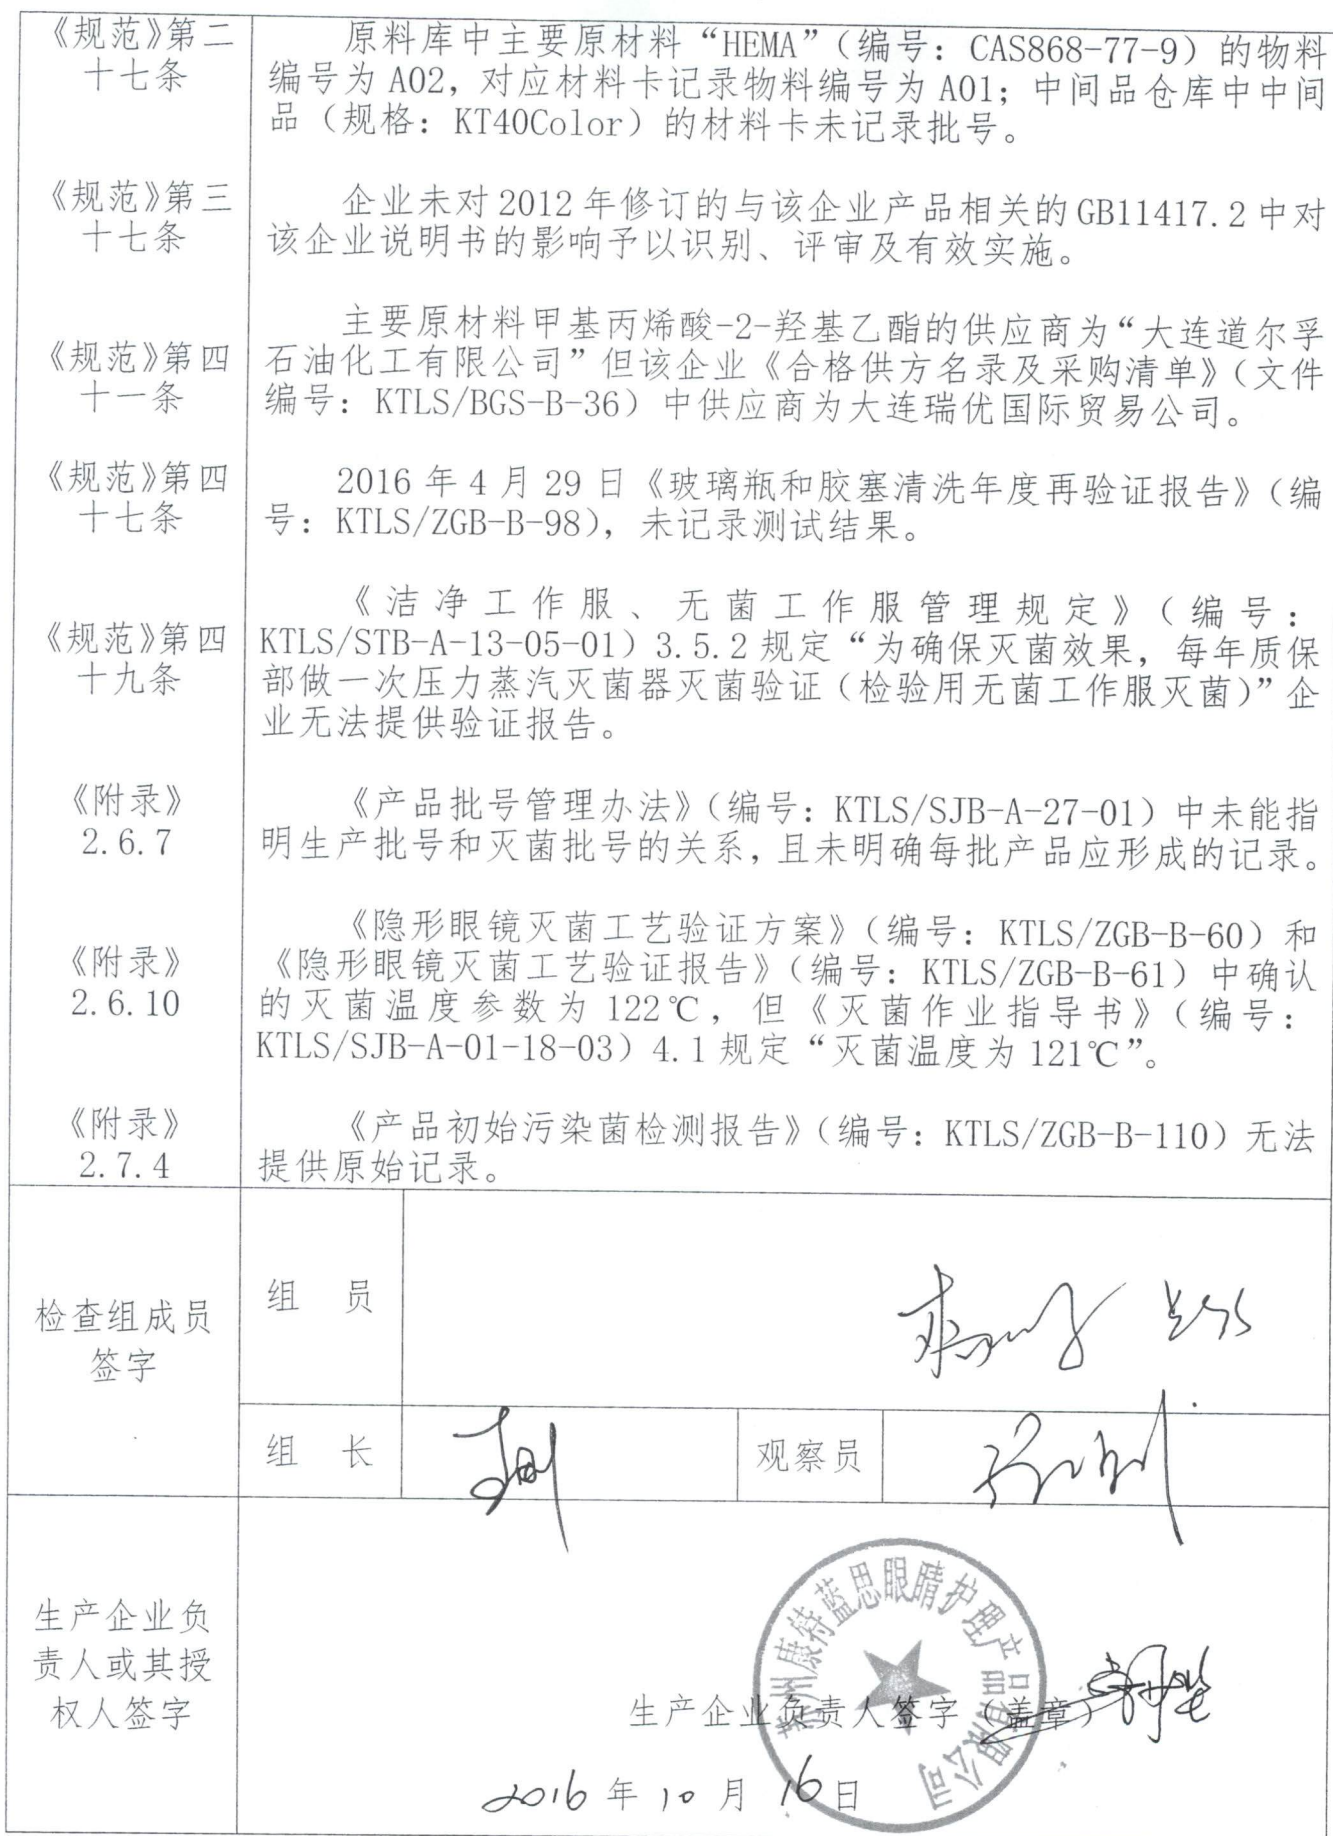 《规范》第二
十七条
原料库中主要原材料“HEMA”（编号：CAS868-77-9）的物料
编号为 A02，对应材料卡记录物料编号为 A01；中间品仓库中中间
品（规格：KT40Color）的材料卡未记录批号。
《规范》第三
十七条
企业未对 2012 年修订的与该企业产品相关的 GB11417.2 中对
该企业说明书的影响予以识别、评审及有效实施。
《规范》第四
十一条
主要原材料甲基丙烯酸-2-羟基乙酯的供应商为“大连道尔孚
石油化工有限公司”但该企业《合格供方名录及采购清单》（文件
编号：KTLS/BGS-B-36）中供应商为大连瑞优国际贸易公司。
《规范》第四
十七条
2016 年 4 月 29 日《玻璃瓶和胶塞清洗年度再验证报告》（编
号：KTLS/ZGB-B-98），未记录测试结果。
《规范》第四
十九条
《洁净工作服、无菌工作服管理规定》（编号：
KTLS/STB-A-13-05-01）3.5.2 规定“为确保灭菌效果，每年质保
部做一次压力蒸汽灭菌器灭菌验证（检验用无菌工作服灭菌）”企
业无法提供验证报告。
《附录》
2.6.7
《产品批号管理办法》（编号：KTLS/SJB-A-27-01）中未能指
明生产批号和灭菌批号的关系，且未明确每批产品应形成的记录。
《附录》
2.6.10
《隐形眼镜灭菌工艺验证方案》（编号：KTLS/ZGB-B-60）和
《隐形眼镜灭菌工艺验证报告》（编号：KTLS/ZGB-B-61）中确认
的灭菌温度参数为 122℃，但《灭菌作业指导书》（编号：
KTLS/SJB-A-01-18-03）4.1 规定“灭菌温度为 121℃”。
《附录》
2.7.4
《产品初始污染菌检测报告》（编号：KTLS/ZGB-B-110）无法
提供原始记录。
检查组成员
签字
组 员
组 长
观察员
生产企业负
责人或其授
权人签字
苏州康特蓝思眼睛护理产品有限公司
生产企业负责人签字（盖章）
2016 年 10 月 16 日